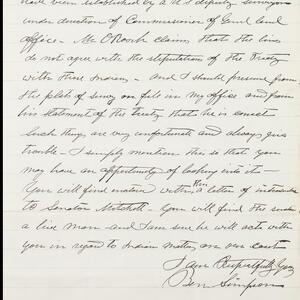 have been established by a U S deputy surveyor
under direction of Commissioner of Genl land
office - Mr O'Rourk claims that the lines
do not agree with the stipulation of the Treaty
with those Indians - and I should presume from
the plats of survey on file in my office and from
his statement of the treaty that he is correct
Such things are very unfortunate and always give
trouble - I simply mention this so that you
may have an opportunity of looking into it -
You will find with this a letter of
to Senator Mitchell - You will find the
a live man and I am sure he will act with
you in regard to Indian matters on our Coast
I am Respectfully yours
Ben Simpson